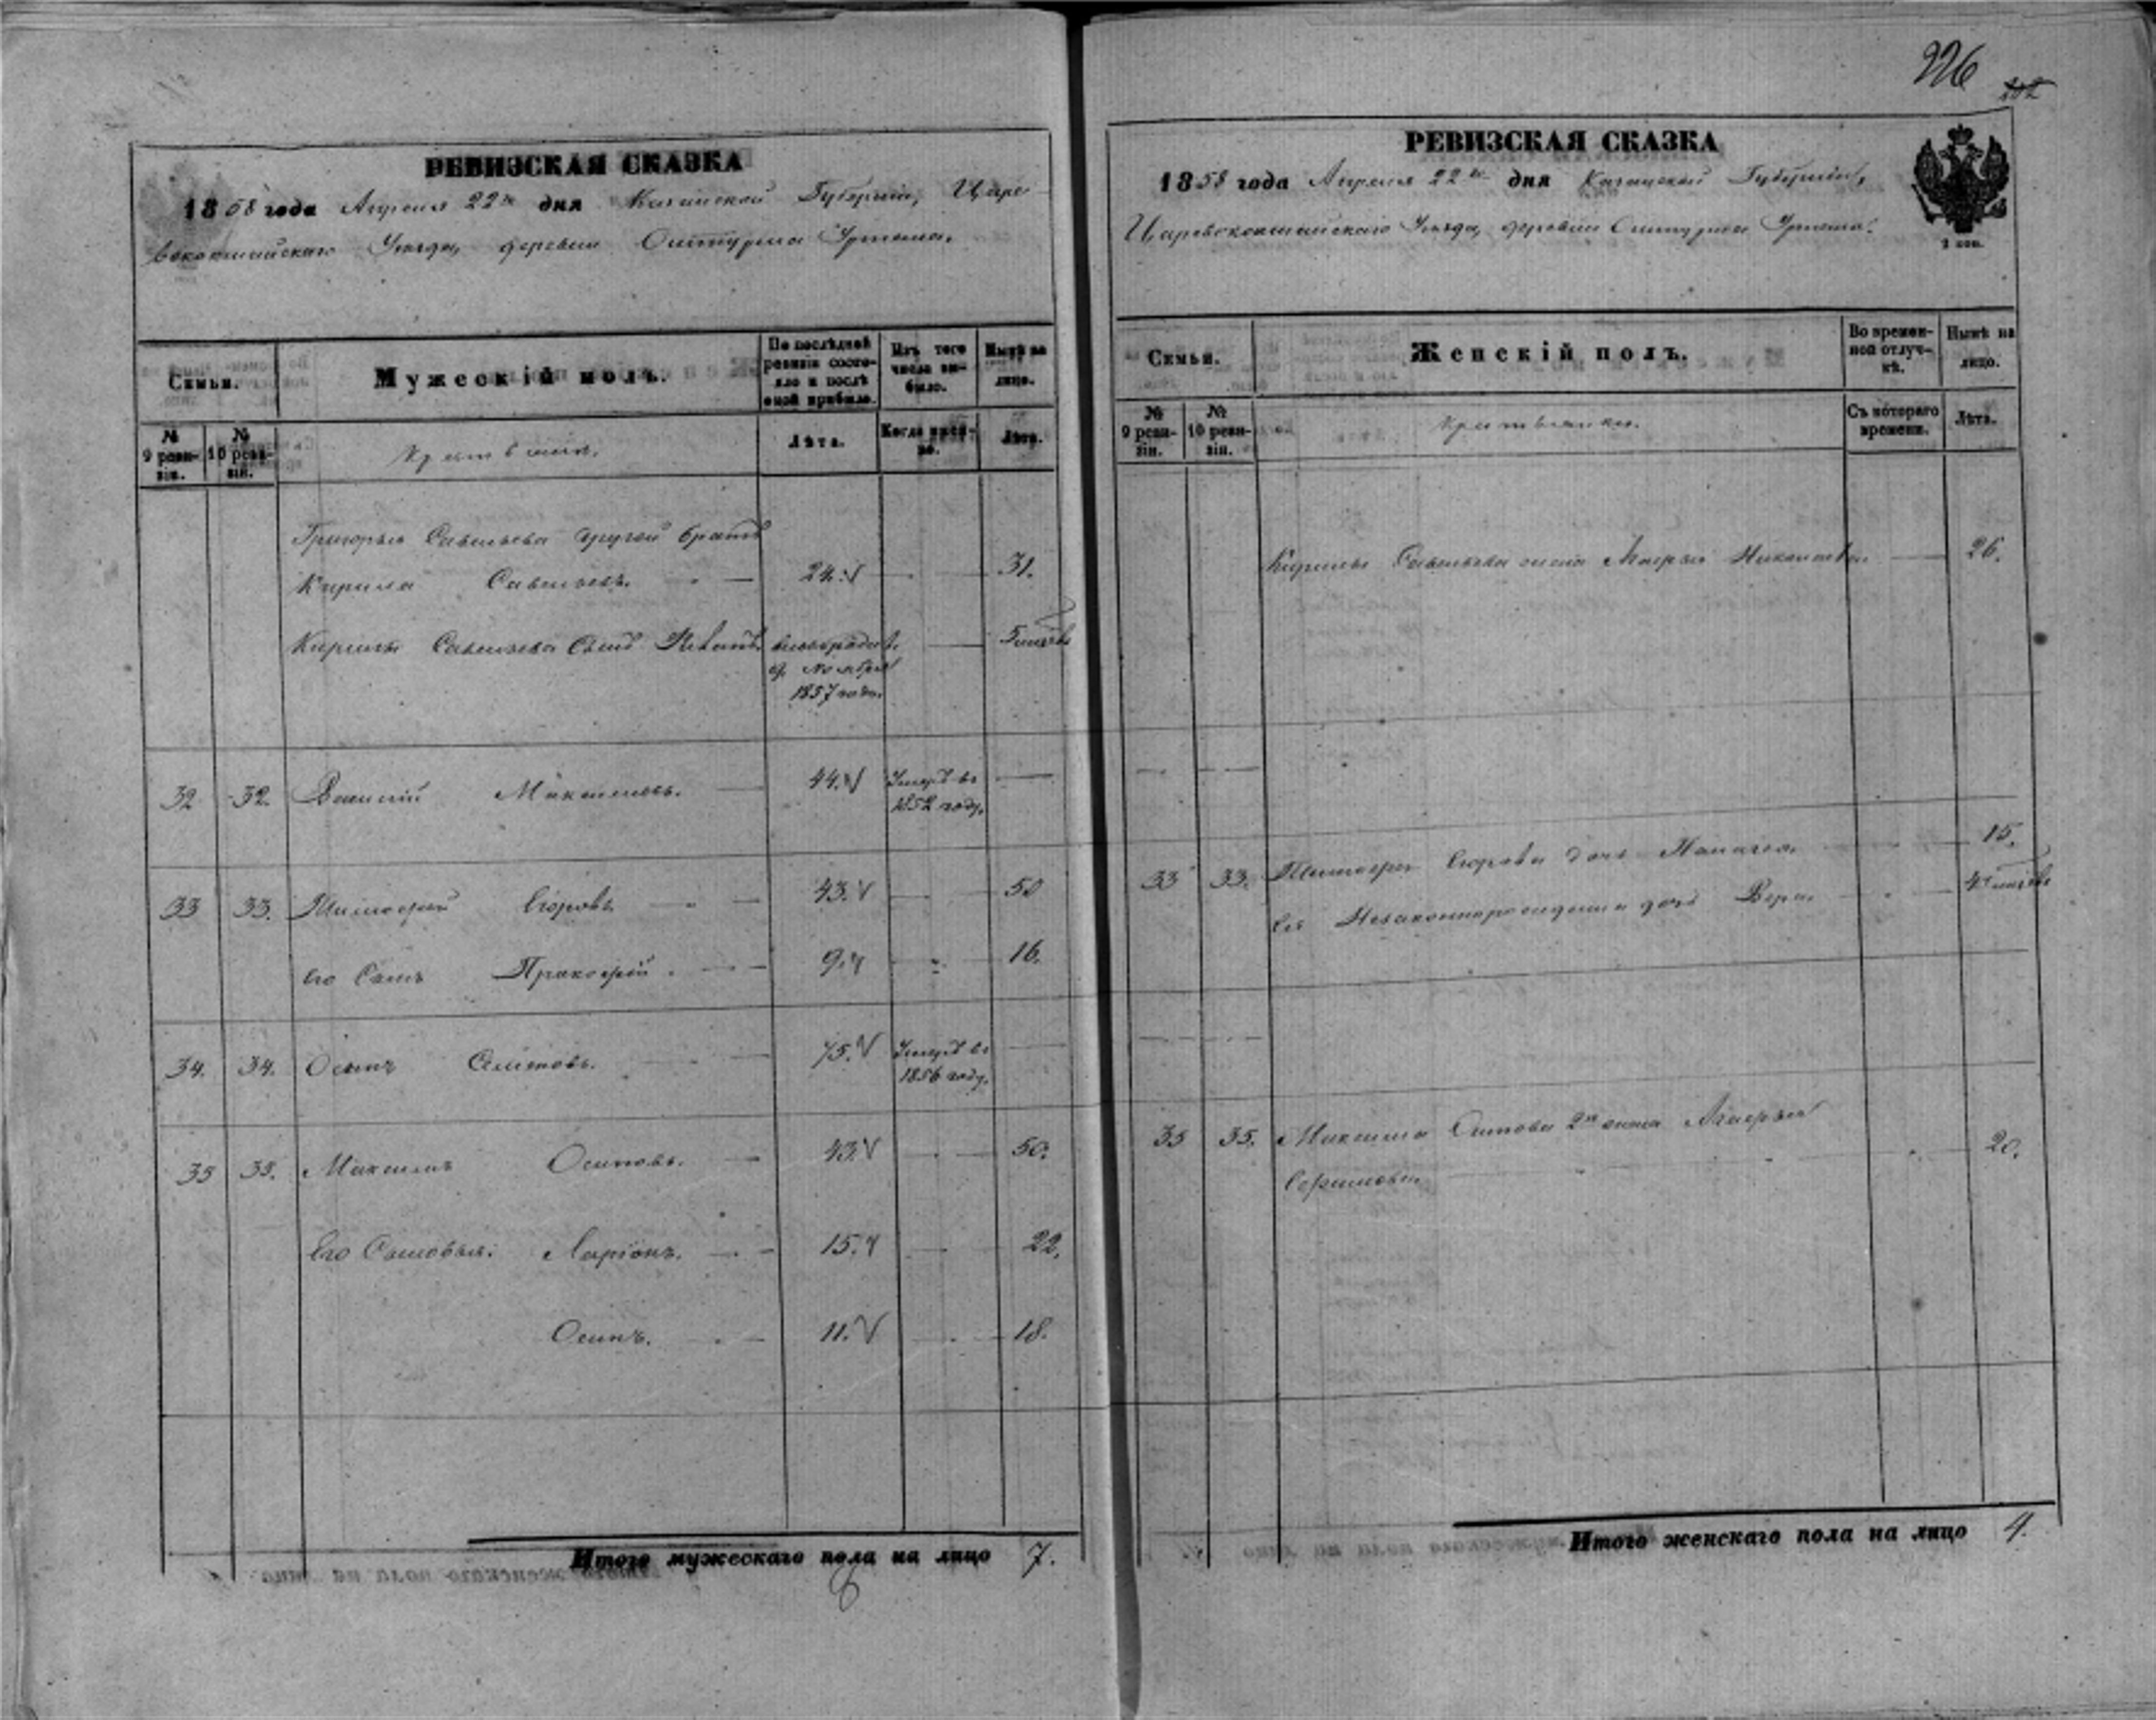 226
РЕВИЗСКАЯ СКАЗКА
1858 года Апреля 22го дня Казанской Губерніи, Царе-
вококшайскаго Уезда, деревни
Семьи.
Мужескій полъ.
По послѣдней ревизіи состояло и послѣ оной прибыло.
Изъ того числа выбыло.
Нынѣ на лицо.
№ 9 ревизіи.
№ 10 ревизіи.
Лѣта.
Когда именно.
Лѣта.
Григорья Савельева другой братъ
Кирила Савельевъ. 24. 31.
Кирилы Савельева Сынъ
1857 года.
32 32. Василій Максимовъ. 44. Умеръ въ
1852 году.
33 33. Тимофей Егоровъ 43. 50
Его Сынъ Прокофей 9. 16.
34. 34. Осипъ 75. Умеръ въ
1856 году.
35 35. Максимъ Осиповъ. 43. 50.
Его Сыновья: Ларіонъ. 15. 22.
Осипъ. 11. 18.
Итого мужескаго пола на лицо 7.
РЕВИЗСКАЯ СКАЗКА
1858 года Апреля 22го дня Казанской Губерніи,
Царевококшайскаго Уезда, деревни
2 коп.
Семьи.
Женскій полъ.
Во временной отлучкѣ.
Нынѣ на лицо.
№ 9 ревизіи.
№ 10 ревизіи.
Съ котораго времени.
Лѣта.
Кирилы Савельева жена Марья Николаева 26.
33 33. Тимофея Егорова дочь 15.
Ея Незаконнорожденна дочь Вера
35 35. Максима Осипова 2я жена
20.
Итого женскаго пола на лицо 4.